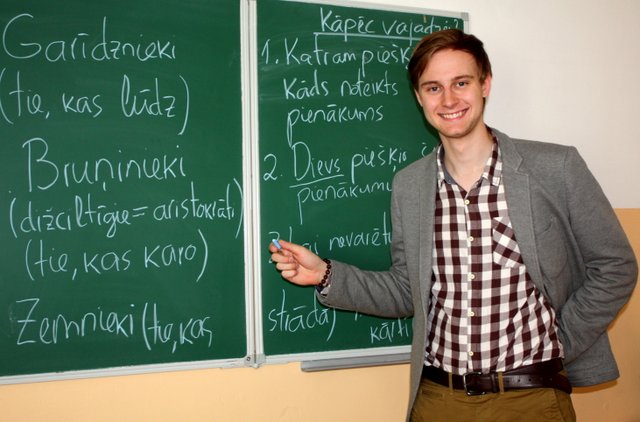 Garīdznieki
(tie, kas lūdz)
Bruņinieki
(dižciltīgie = aristokrāti)
(tie, kas karo)
Zemnieki (tie, kas
strādā)
Kāpēc vajadzēja?
1. Katram
Kāds noteikts
pienākums
2. Dievs piešķir
pienākumu
nevarētu
kārti